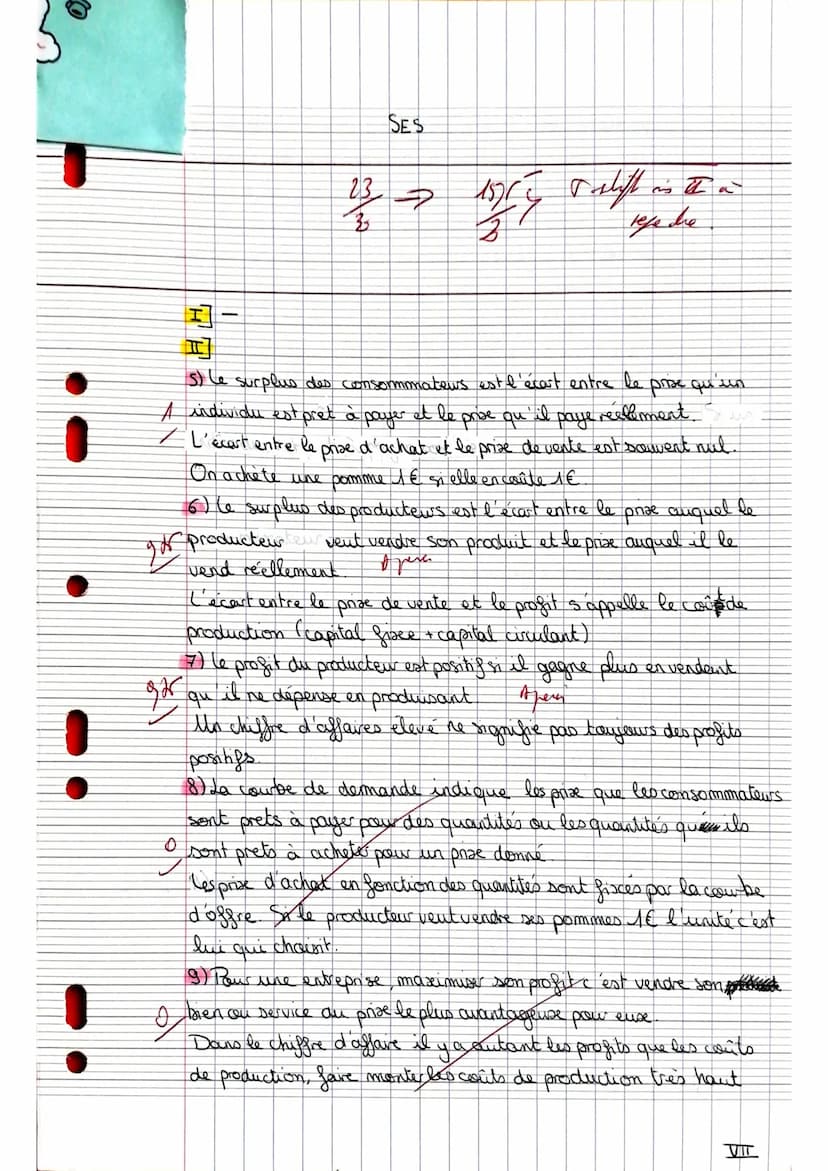 SES
23 ⇒ 15,75
I] –
II]
5) Le surplus des consommmateurs est l'écart entre le prix qu'un
1 individu est prêt à payer et le prix qu'il paye réellement.
L'écart entre le prix d'achat et le prix de vente est souvent nul.
On achète une pomme 1€ si elle en coûte 1€.
6) Le surplus des producteurs est l'écart entre le prix auquel le
producteur veut vendre son produit et le prix auquel il le
vend réellement.
L'écart entre le prix de vente et le profit s'appelle le coût de
production (capital fixe + capital circulant)
7) Le profit du producteur est positif si il gagne plus en vendant
qu'il ne dépense en produisant.
Un chiffre d'affaires élevé ne signifie pas toujours des profits
positifs.
8) La courbe de demande indique les prix que les consommmateurs
sont prets à payer pour des quantités ou les quantités qu'ils
0 sont prets à acheter pour un prix donné.
Les prix d'achat en fonction des quantités sont fixés par la courbe
d'offre. Si le producteur veut vendre ses pommes 1€ l'unité c'est
lui qui choisit.
9) Pour une entreprise, maximiser son profit c'est vendre son
0 bien ou service au prix le plus avantageux pour eux.
Dans le chiffre d'affare il y a autant les profits que les coûts
de production, faire monter les coûts de production très haut
VII